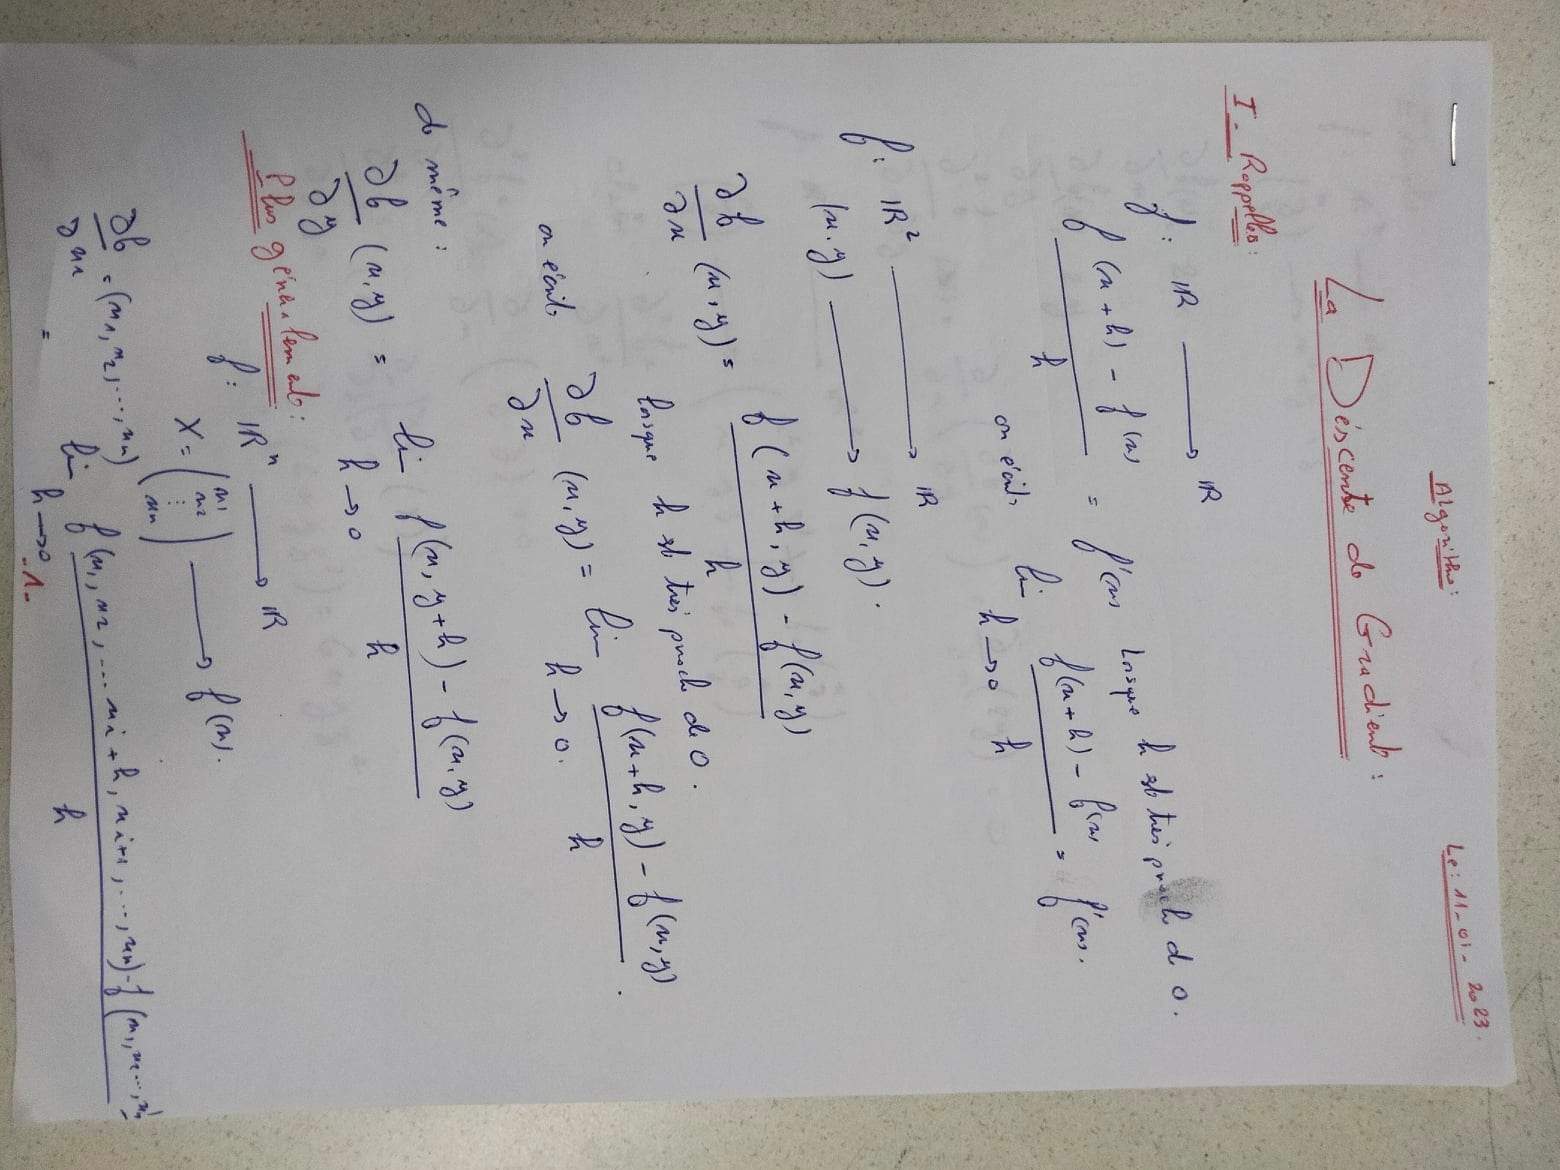 Algorithe:
Le: 11-01-2023.
La Déscente de Gradient:
I- Rappelles:
f: ℝ ⟶ ℝ
(f(x+h) - f(x))/h = f'(x) Lorsque h est très proche de 0.
on écrit lim h→0 (f(x+h) - f(x))/h = f'(x).
f: ℝ² ⟶ ℝ
(x,y) ⟶ f(x,y).
∂f/∂x (x,y) = (f(x+h, y) - f(x,y))/h
lorsque h est très proche de 0.
on écrit ∂f/∂x (x,y) = lim h→0. (f(x+h, y) - f(x,y))/h.
de même:
∂f/∂y (x,y) = lim h→0 (f(x, y+h) - f(x,y))/h
Plus généralement:
f: ℝⁿ ⟶ ℝ
X = (x1 x2 ... xn) ⟶ f(x).
∂f/∂xi = (x1, x2, ..., xn)
= lim h→0 (f(x1, x2, ... xi+h, xi+1, ..., xn) - f(x1, x2 ..., xn))/h
-1-